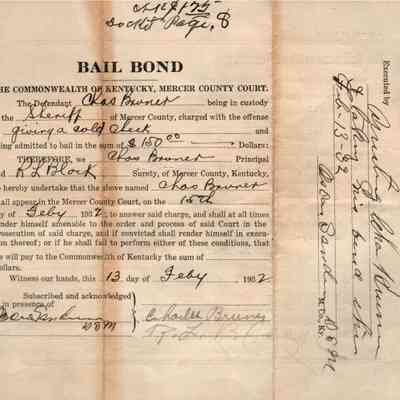 175
Docket Page 8
BAIL BOND
THE COMMONWEALTH OF KENTUCKY, MERCER COUNTY COURT.
The Defendant Chas Bruner being in custody
the Sheriff of Mercer County, charged with the offense
giving a cold Check and
being admitted to bail in the sum of $150.00 Dollars:
THEREFORE, we Chas Bruner Principal
and R L Block Surety, of Mercer County, Kentucky,
do hereby undertake that the above named Chas Bruner
all appear in the Mercer County Court, on the 15th
y of Feby 1932, to answer said charge, and shall at all times
render himself amenable to the order and process of said Court in the
prosecution of said charge, and if convicted shall render himself in execu-
on thereof; or if he shall fail to perform either of these conditions, that
e will pay to the Commonwealth of Kentucky the sum of
dollars.
Witness our hands, this 13 day of Feby 1932
Subscribed and acknowledged
in presence of
D S M
Charlie Bruner
R. L. B
Executed by
taking his bond this
Feb-13-32
D S M
M. Co. Ky.